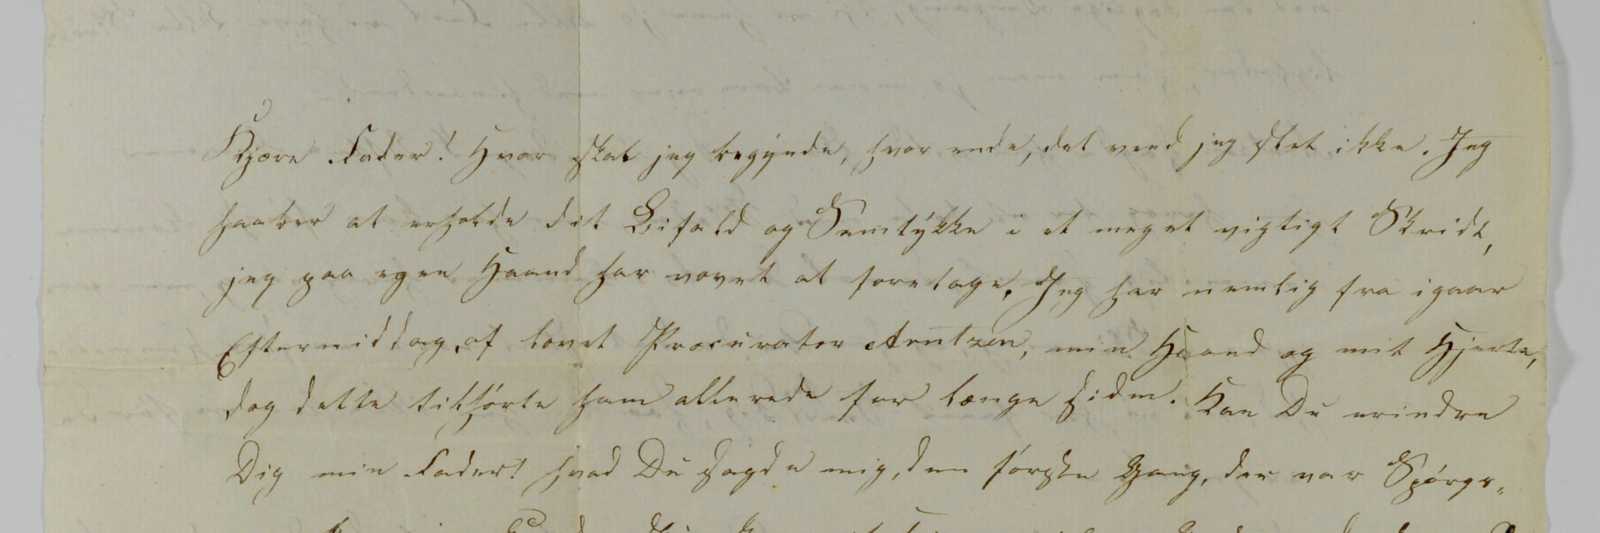 Kjære Fader! Hvor skal jeg begynde, hvor ende, det veed jeg slet ikke. Jeg
haaber at erholde dit Bifald og Samtykke i et meget vigtigt Skridt,
jeg paa egen Haand har vovet at foretage. Jeg har nemlig fra igaar
Eftermiddag, af lovet Procurator Arntzen, min Haand og mit Hjerte,
dog dette tilhørte ham allerede for længe siden. Kan Du erindre
Dig min Fader! hvad Du sagde mig, den første Gang, der var Spørgs-